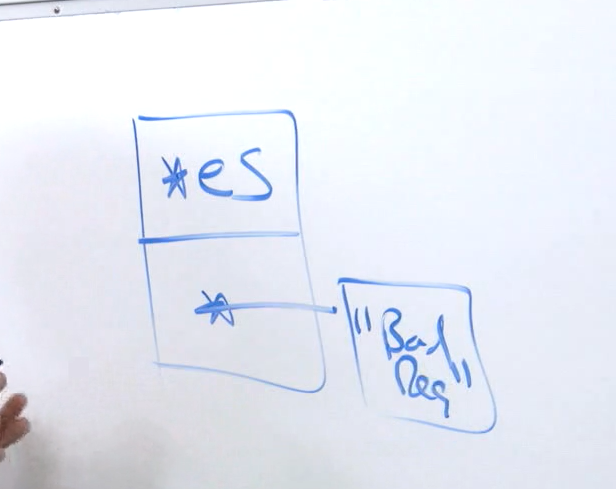 *es
*
"Bad
Req"